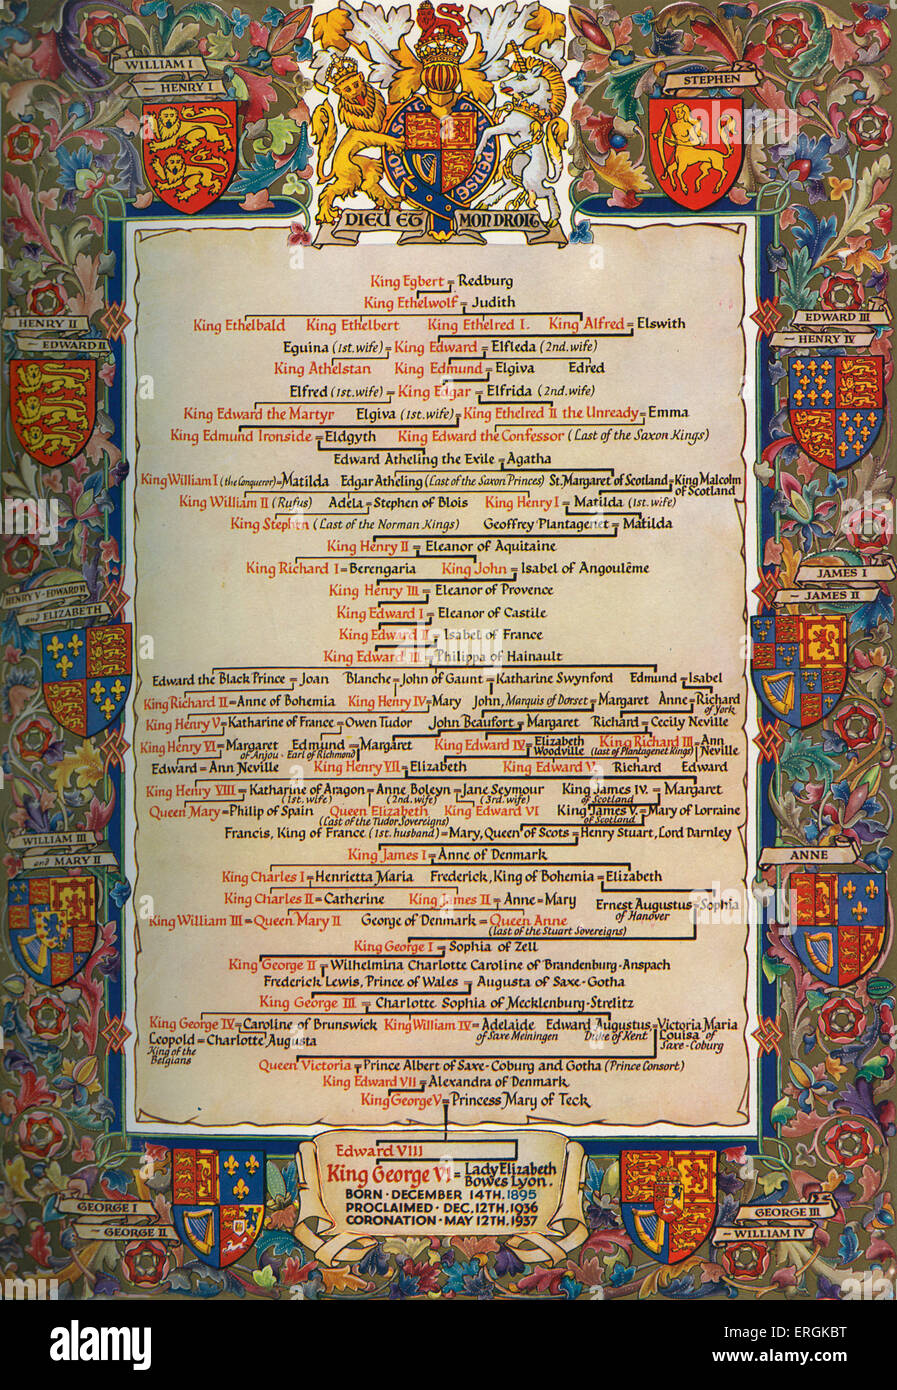 WILLIAM I
~ HENRY I
STEPHEN
DIEU ET MON DROIT
King Egbert = Redburg
King Ethelwolf = Judith
King Ethelbald King Ethelbert King Ethelred I. King Alfred = Elswith
HENRY II
~ EDWARD II
EDWARD III
~ HENRY IV
Eguina (1st. wife) = King Edward = Elfleda (2nd. wife)
King Athelstan King Edmund = Elgiva Edred
Elfred (1st. wife) = King Edgar = Elfrida (2nd. wife)
King Edward the Martyr Elgiva (1st. wife) = King Ethelred II the Unready = Emma
King Edmund Ironside = Eldgyth King Edward the Confessor (Last of the Saxon Kings)
Edward Atheling the Exile = Agatha
King William I (the Conqueror) = Matilda Edgar Atheling (Last of the Saxon Princes) St. Margaret of Scotland = King Malcolm of Scotland
King William II (Rufus) Adela = Stephen of Blois King Henry I = Matilda (1st. wife)
King Stephen (Last of the Norman Kings) Geoffrey Plantagenet = Matilda
King Henry II = Eleanor of Aquitaine
King Richard I = Berengaria King John = Isabel of Angoulême
HENRY V - EDWARD VI
and ELIZABETH
JAMES I
~ JAMES II
King Henry III = Eleanor of Provence
King Edward I = Eleanor of Castile
King Edward II = Isabel of France
King Edward III = Philippa of Hainault
Edward the Black Prince = Joan Blanche = John of Gaunt = Katharine Swynford Edmund = Isabel
King Richard II = Anne of Bohemia King Henry IV = Mary John, Marquis of Dorset = Margaret Anne = Richard of York
King Henry V = Katharine of France = Owen Tudor John Beaufort = Margaret Richard = Cecily Neville
King Henry VI = Margaret of Anjou Edmund Earl of Richmond = Margaret King Edward IV = Elizabeth Woodville King Richard III (last of Plantagenet Kings) = Ann Neville
Edward = Ann Neville King Henry VII = Elizabeth King Edward V Richard Edward
King Henry VIII = Katharine of Aragon (1st. wife) = Anne Boleyn (2nd. wife) = Jane Seymour (3rd. wife) King James IV. of Scotland = Margaret
Queen Mary = Philip of Spain Queen Elizabeth (Last of the Tudor Sovereigns) King Edward VI King James V. of Scotland = Mary of Lorraine
Francis, King of France (1st. husband) = Mary, Queen of Scots = Henry Stuart, Lord Darnley
WILLIAM III
and MARY II
ANNE
King James I = Anne of Denmark
King Charles I = Henrietta Maria Frederick, King of Bohemia = Elizabeth
King Charles II = Catherine King James II = Anne-Mary Ernest Augustus of Hanover = Sophia
King William III = Queen Mary II George of Denmark = Queen Anne (last of the Stuart Sovereigns)
King George I = Sophia of Zell
King George II = Wilhelmina Charlotte Caroline of Brandenburg-Anspach
Frederick Lewis, Prince of Wales = Augusta of Saxe-Gotha
King George III = Charlotte Sophia of Mecklenburg-Strelitz
King George IV = Caroline of Brunswick King William IV = Adelaide of Saxe Meiningen Edward Augustus Duke of Kent = Victoria Maria Louisa of Saxe-Coburg
Leopold King of the Belgians = Charlotte Augusta
Queen Victoria = Prince Albert of Saxe-Coburg and Gotha (Prince Consort)
King Edward VII = Alexandra of Denmark
King George V = Princess Mary of Teck
Edward VIII
King George VI = Lady Elizabeth Bowes Lyon.
BORN · DECEMBER 14TH. 1895
PROCLAIMED · DEC. 12TH. 1936
CORONATION · MAY 12TH. 1937
GEORGE I
~ GEORGE II
GEORGE III
~ WILLIAM IV
alamy
Image ID: ERGKBT
www.alamy.com